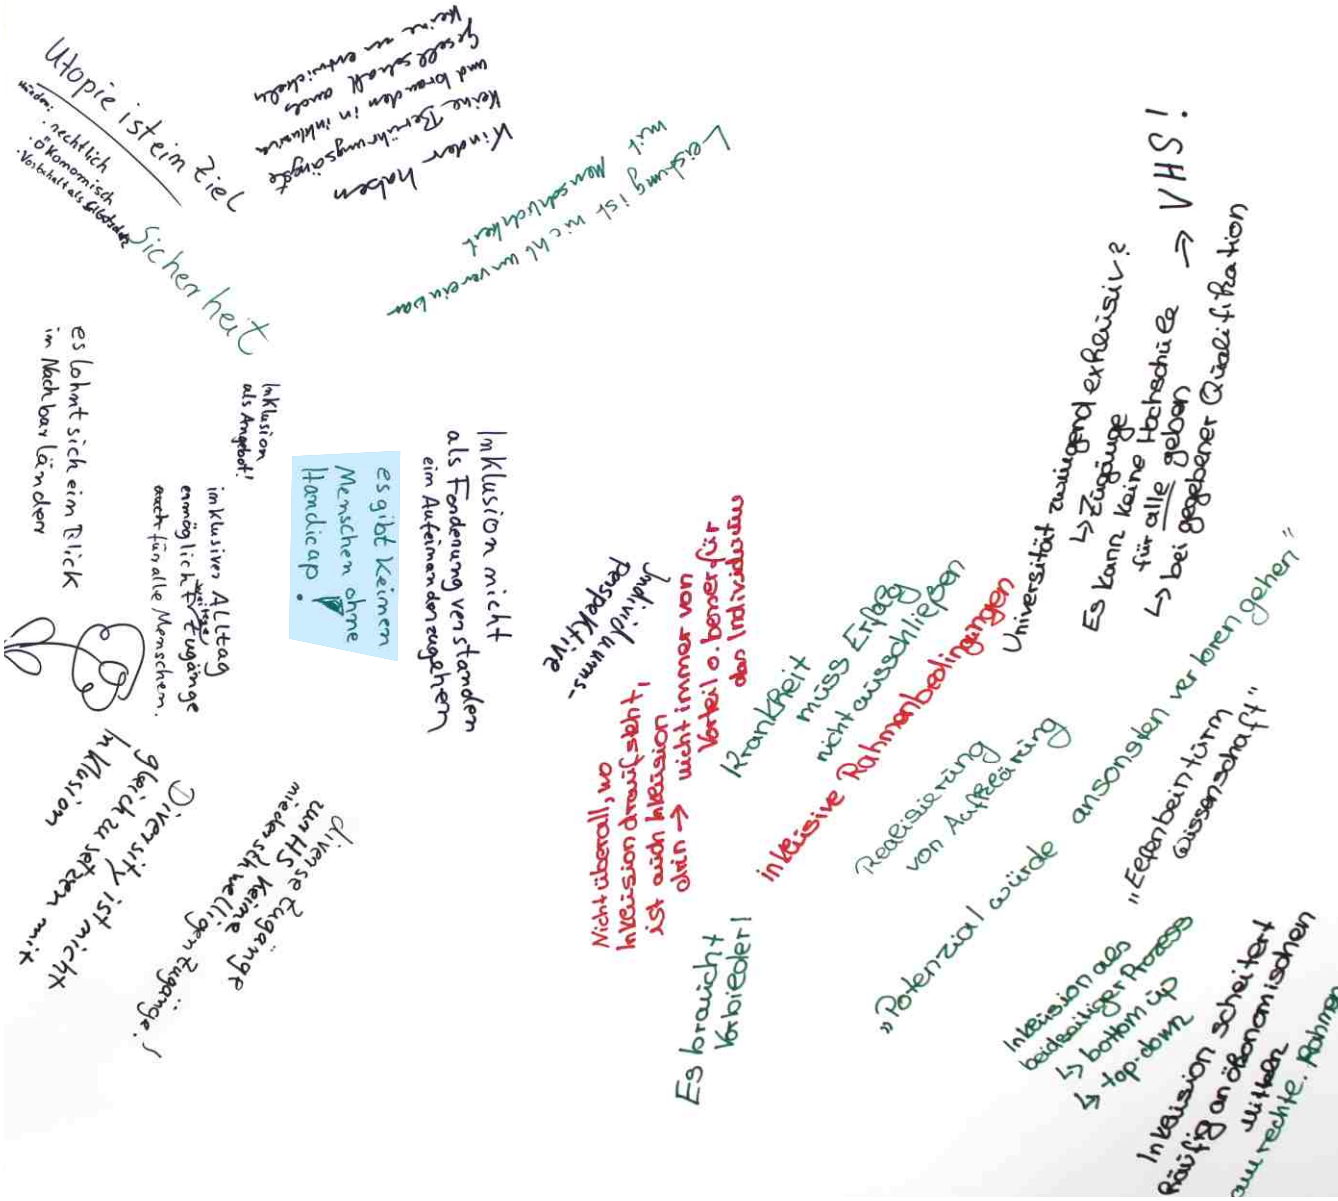 Utopie ist ein Ziel
Hürden:
· rechtlich
· ökonomisch
Sicherheit
Kinder haben
keine Berührungsängste
und brauchen in inklusiver
Gesellschaft auch
keine zu entwickeln
Leistung ist nicht unvereinbar
mit Menschlichkeit
es lohnt sich ein Blick
im Nachbarländer
Inklusion
als Angebot!
inklusiver Alltag
ermöglicht weitere Zugänge
auch für alle Menschen.
es gibt keinen
Menschen ohne
Handicap!
Inklusion nicht
als Forderung verstanden
ein Aufeinanderzugehen
Individuums-
perspektive
Diversity ist nicht
gleich zu setzen mit
Inklusion
diverse Zugänge
zur HS keine
niederschwelligen Zugänge!
Nicht überall, wo
Inklusion draufsteht,
ist auch Inklusion
drin → nicht immer von
Vorteil o. besser für
das Individuum
Krankheit
muss Erfolg
nicht ausschließen
inklusive Rahmenbedingungen
Universität zwingend exklusiv?
↳ Zugänge
Es kann keine Hochschule → VHS!
für alle geben
↳ bei gegebener Qualifikation
Realisierung
von Aufklärung
"Potenzial würde ansonsten verloren gehen"
"Elfenbeinturm
Wissenschaft"
Es braucht
Vorbilder!
Inklusion als
beidseitiger Prozess
↳ bottom up
↳ top-down
Inklusion scheitert
häufig an ökonomischen
Mitteln
rechtl. Rahmen